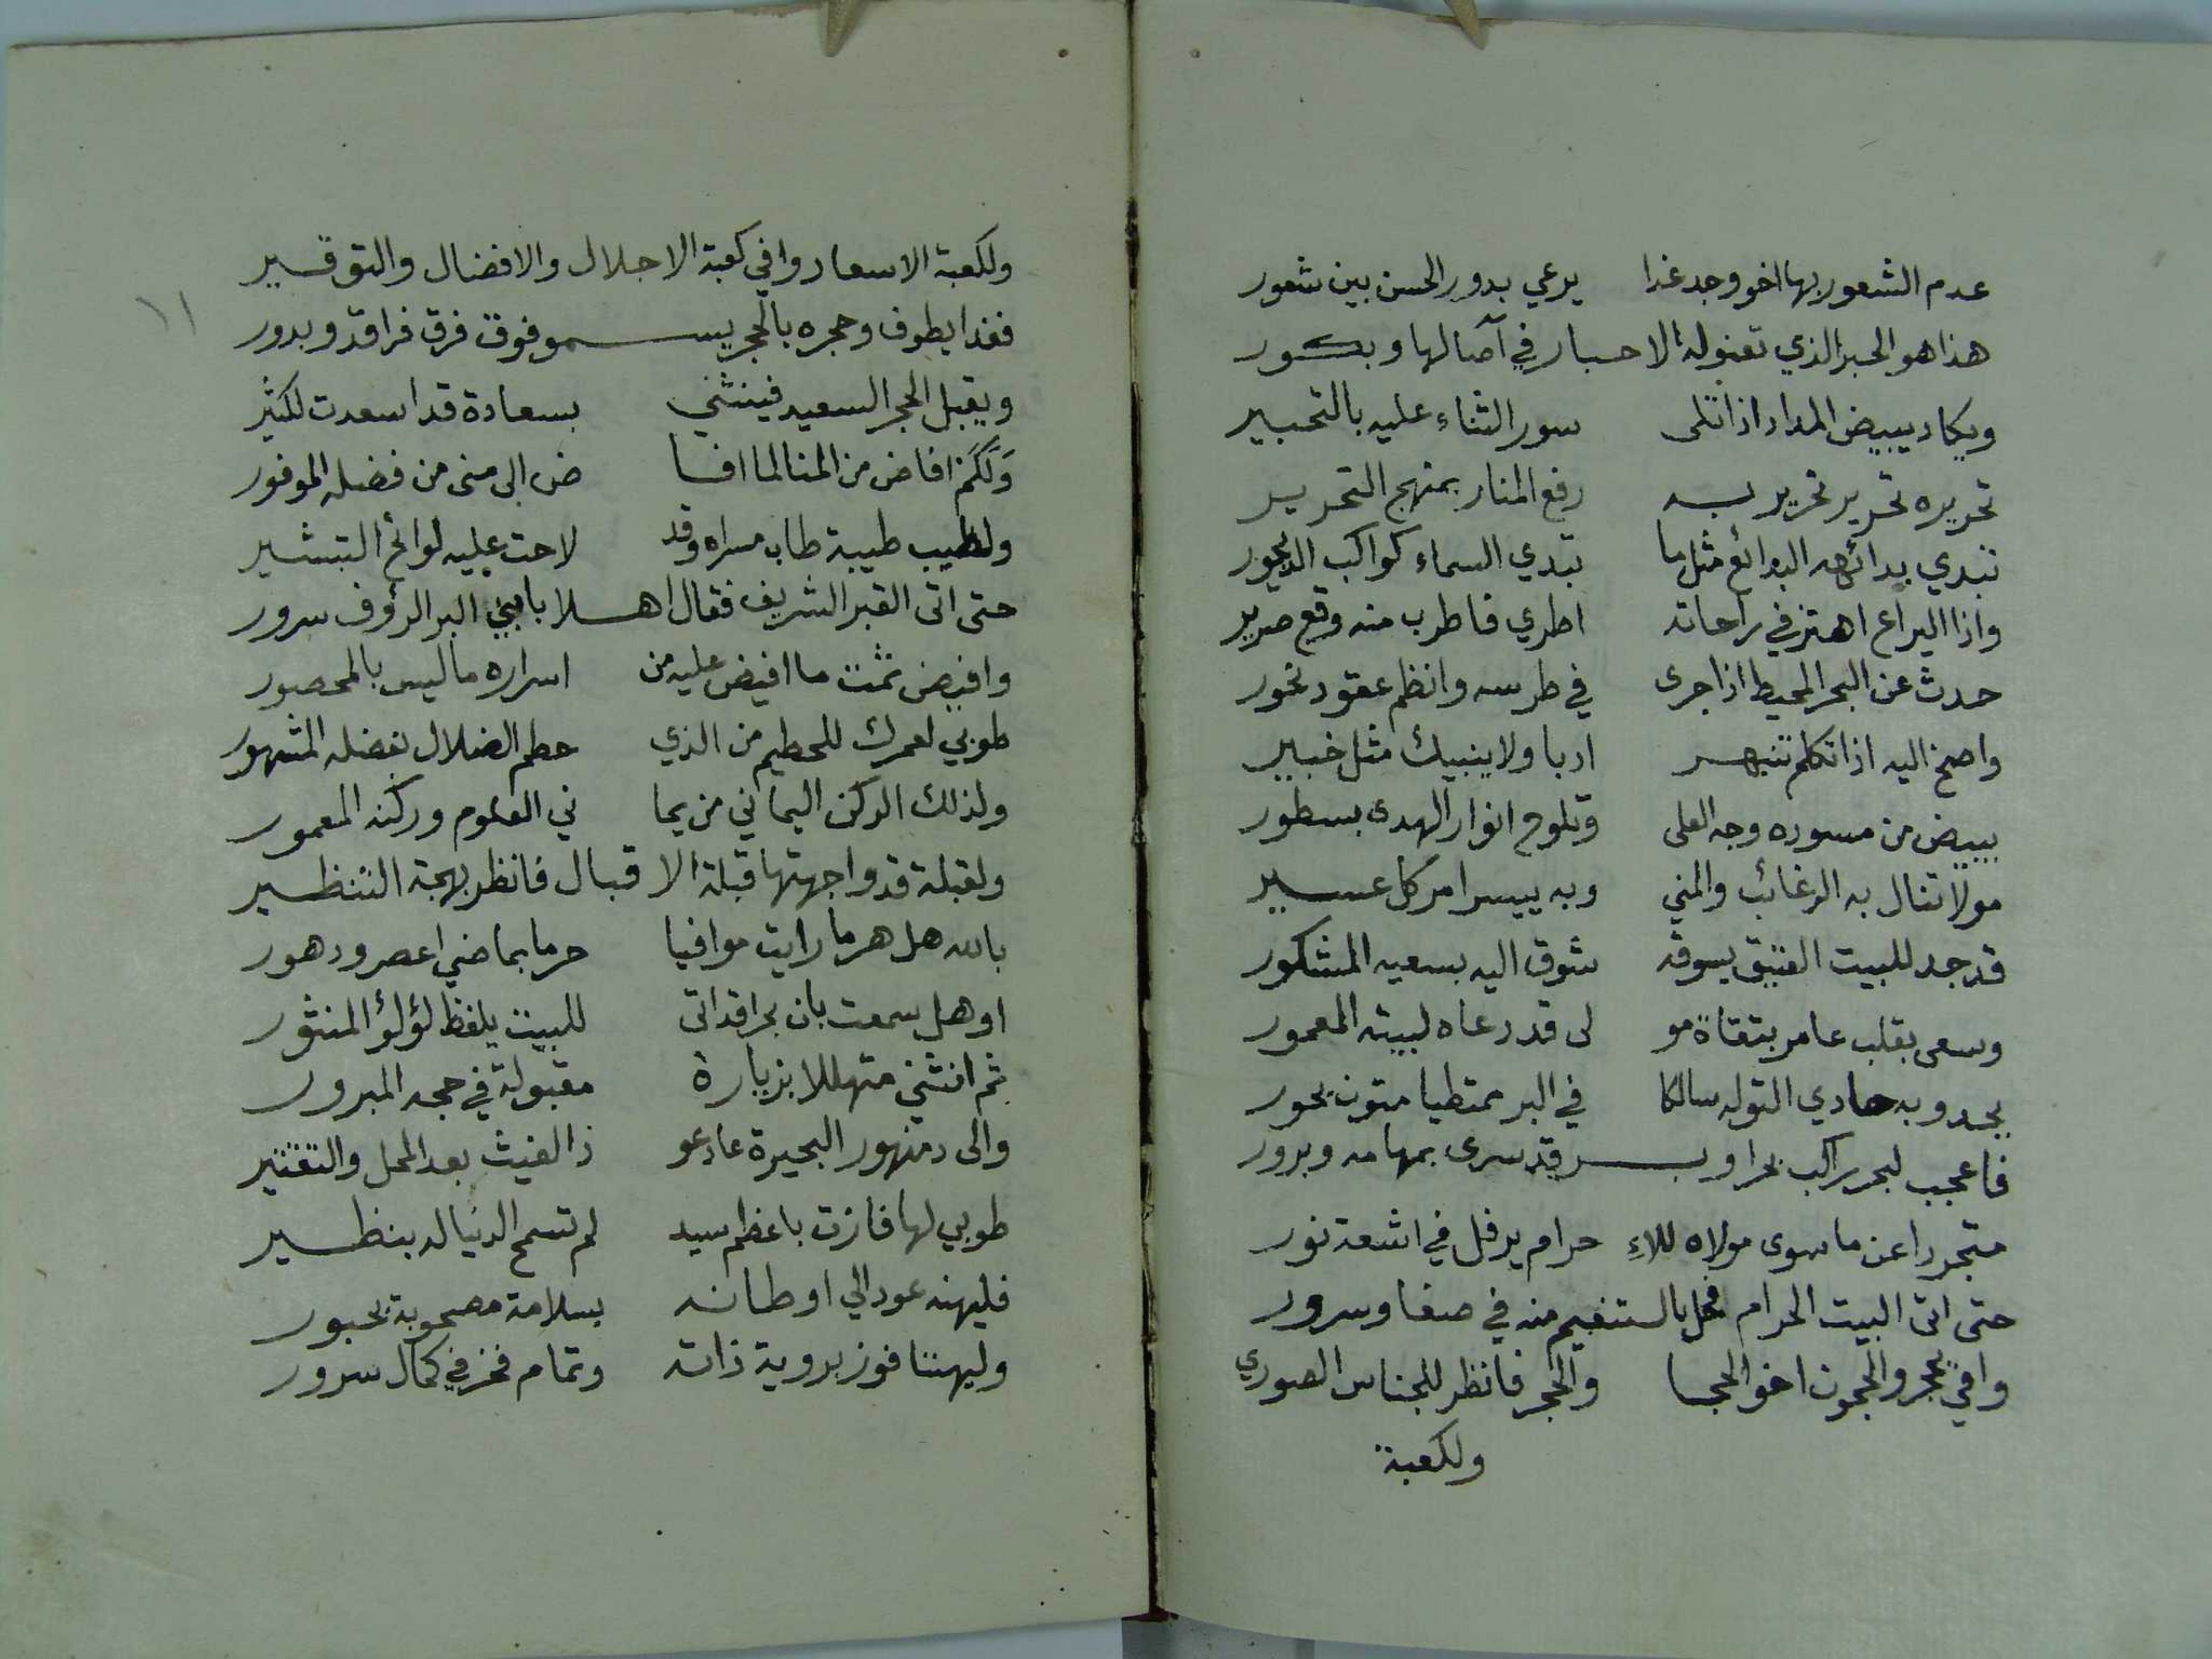 عدم الشعور بها اخو وجد غدا يرعي بدور الحسن بين شعور
هذا هو الحبر الذي تعنو له الاحبار في آصالها وبكور
ويكاد يبيض المداد اذا تلى سور الثناء عليه بالتحبير
تحريره تحرير تحرير به رفع المنار بمنهج التحرير
تبدي بدائهه البدائع مثل ما تبدي السماء كواكب الديجور
واذا اليراع اهتز في راحاته اطري فاطرب منه وقع صرير
حدث عن البحر المحيط اذا جرى في طرسه وانظم عقود نحور
واصخ اليه اذا تكلم تنبهر ادبا ولا ينبيك مثل خبير
يبيض من مسوده وجه العلى وتلوح انوار الهدى بسطور
مولا تنال به الرغائب والمني وبه ييسر امر كل عسير
قد جد للبيت العتيق يسوقه شوق اليه بسعيه المشكور
وسعى بقلب عامر بتقاة مو لى قد دعاه لبيته المعمور
يحدو به حادي التوله سالكا في البر ممتطيا متون بحور
فاعجب لبحر راكب بحرا وبر قد سرى بمهامه وبرور
متجردا عن ما سوى مولاه للاء حرام يرفل في اشعة نور
حتى اتى البيت الحرام فحل بالتنعيم منه في صفا وسرور
وافي بحجر والحجون اخو الحجا والحجر فانظر للجناس الصوري
ولكعبة
١١
ولكعبة الاسعاد وافي كعبة الاجلال والافضال والتوقير
فغدا يطوف وحجره بالحجر يسمو فوق فرق فراقد وبدور
ويقبل الحجر السعيد فينثني بسعادة قد اسعدت لكثير
ولكم افاض من المنا لما افا ض الى منى من فضله الموفور
ولطيب طيبة طاب مسراه وقد لاحت عليه لوائح التبشير
حتى اتى القبر الشريف فقال اهلا يا بني البر الرؤف سرور
وافيض ثمت ما افيض عليه من اسراره ما ليس بالمحصور
طوبي لعمرك للحطيم من الذي حطم الضلال بفضله المشهور
ولذلك الركن اليماني من يما ني العلوم وركنه المعمور
ولقبلة قد واجهتها قبلة الاقبال فانظر بهجة التنظير
بالله هل هرما رايت موافيا حرما بماضي اعصر ودهور
او هل سمعت بان بحرا قد اتى للبيت يلفظ لؤلؤ المنثور
ثم انثني متهللا بزيارة مقبولة في حجه المبرور
والى دمنهور البحيرة عاد عو ذ الغيث بعد المحل والتقتير
طوبي لها فازت باعظم سيد لم تسمح الدنيا له بنظير
فليهنه عود الي اوطانه بسلامة مصحوبة بحبور
وليهننا فوز بروية ذاته وتمام فخر في كمال سرور